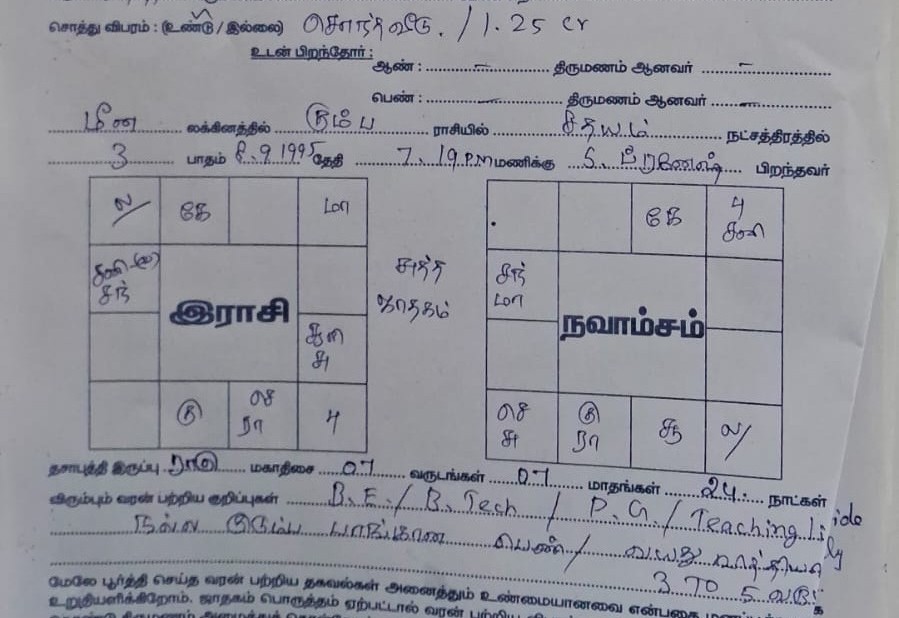 சொத்து விபரம் : (உண்டு / இல்லை) சொந்த வீடு. / 1.25 cr
உடன் பிறந்தோர் :
ஆண் : – திருமணம் ஆனவர் –
பெண் : – திருமணம் ஆனவர் –
மீன லக்கினத்தில் கும்ப ராசியில் சதயம் நட்சத்திரத்தில்
3 பாதம் 8.9.1995 தேதி 7.19 P.M மணிக்கு S. பிறந்தவர்
ல/ கே மா
சனி (வ) சந்
இராசி
சூரி சு
கு செ ரா பு
சுத்த ஜாதகம்
கே பு சனி
சந் மா
நவாம்சம்
செ சு கு ரா சூ ல/
தசாபுத்தி இருப்பு ராகு மகாதிசை 07 வருடங்கள் 07 மாதங்கள் 24. நாட்கள்
விரும்பும் வரன் பற்றிய குறிப்புகள் B.E. / B.Tech / P.G. / Teaching
நல்ல குடும்ப பாங்கான பெண் / வயது வித்தியா
3 TO 5 வரு
மேலே பூர்த்தி செய்த வரன் பற்றிய தகவல்கள் அனைத்தும் உண்மையானவை என்பதை
உறுதியளிக்கிறோம். ஜாதகம் பொருத்தம் ஏற்பட்டால் வரன் பற்றிய